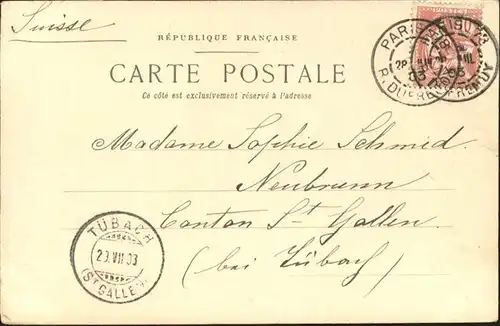 Suisse
RÉPUBLIQUE FRANÇAISE
CARTE POSTALE
Ce côté est exclusivement réservé à l'adresse
Madame Sophie Schmid.
Neubrunn
Canton St Gallen
(bei Tübach)
TÜBACH
29.VII.03
(ST GALLEN)
PARIS
03